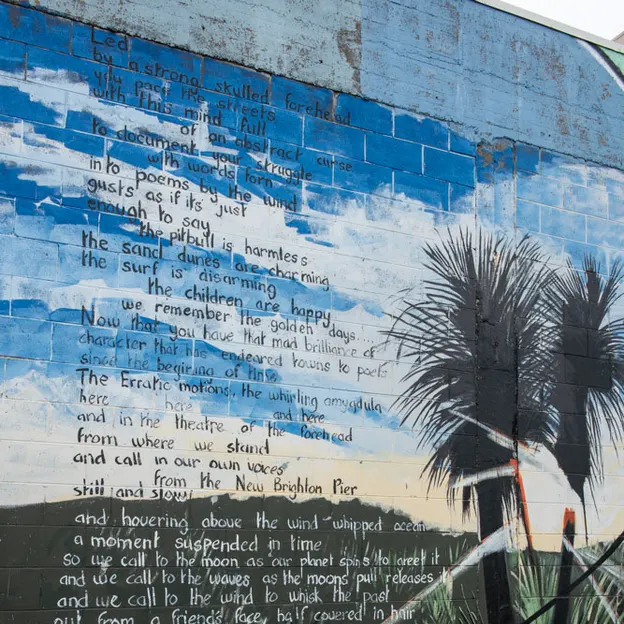 Led
by a strong skulled forehead
you pace the streets
with this mind full
of an abstract curse
to document your struggle
with words torn
into poems by the wind
gusts as if it's just
enough to say
the pitbull is harmless
the sand dunes are charming
the surf is disarming
the children are happy
we remember the golden days....
Now that you have that mad brilliance of
character that has endeared towns to poets
since the begining of time
The Erratic motions, the whirling amygdula
here here and here
and in the theatre of the forehead
from where we stand
and call in our own voices
from the New Brighton Pier
still and slow
and hovering above the wind-whipped ocean
a moment suspended in time
so we call to the moon as our planet spins to greet it
and we call to the waves as the moons pull releases it
and we call to the wind to whisk the past
out from a friend's face, half covered in hair